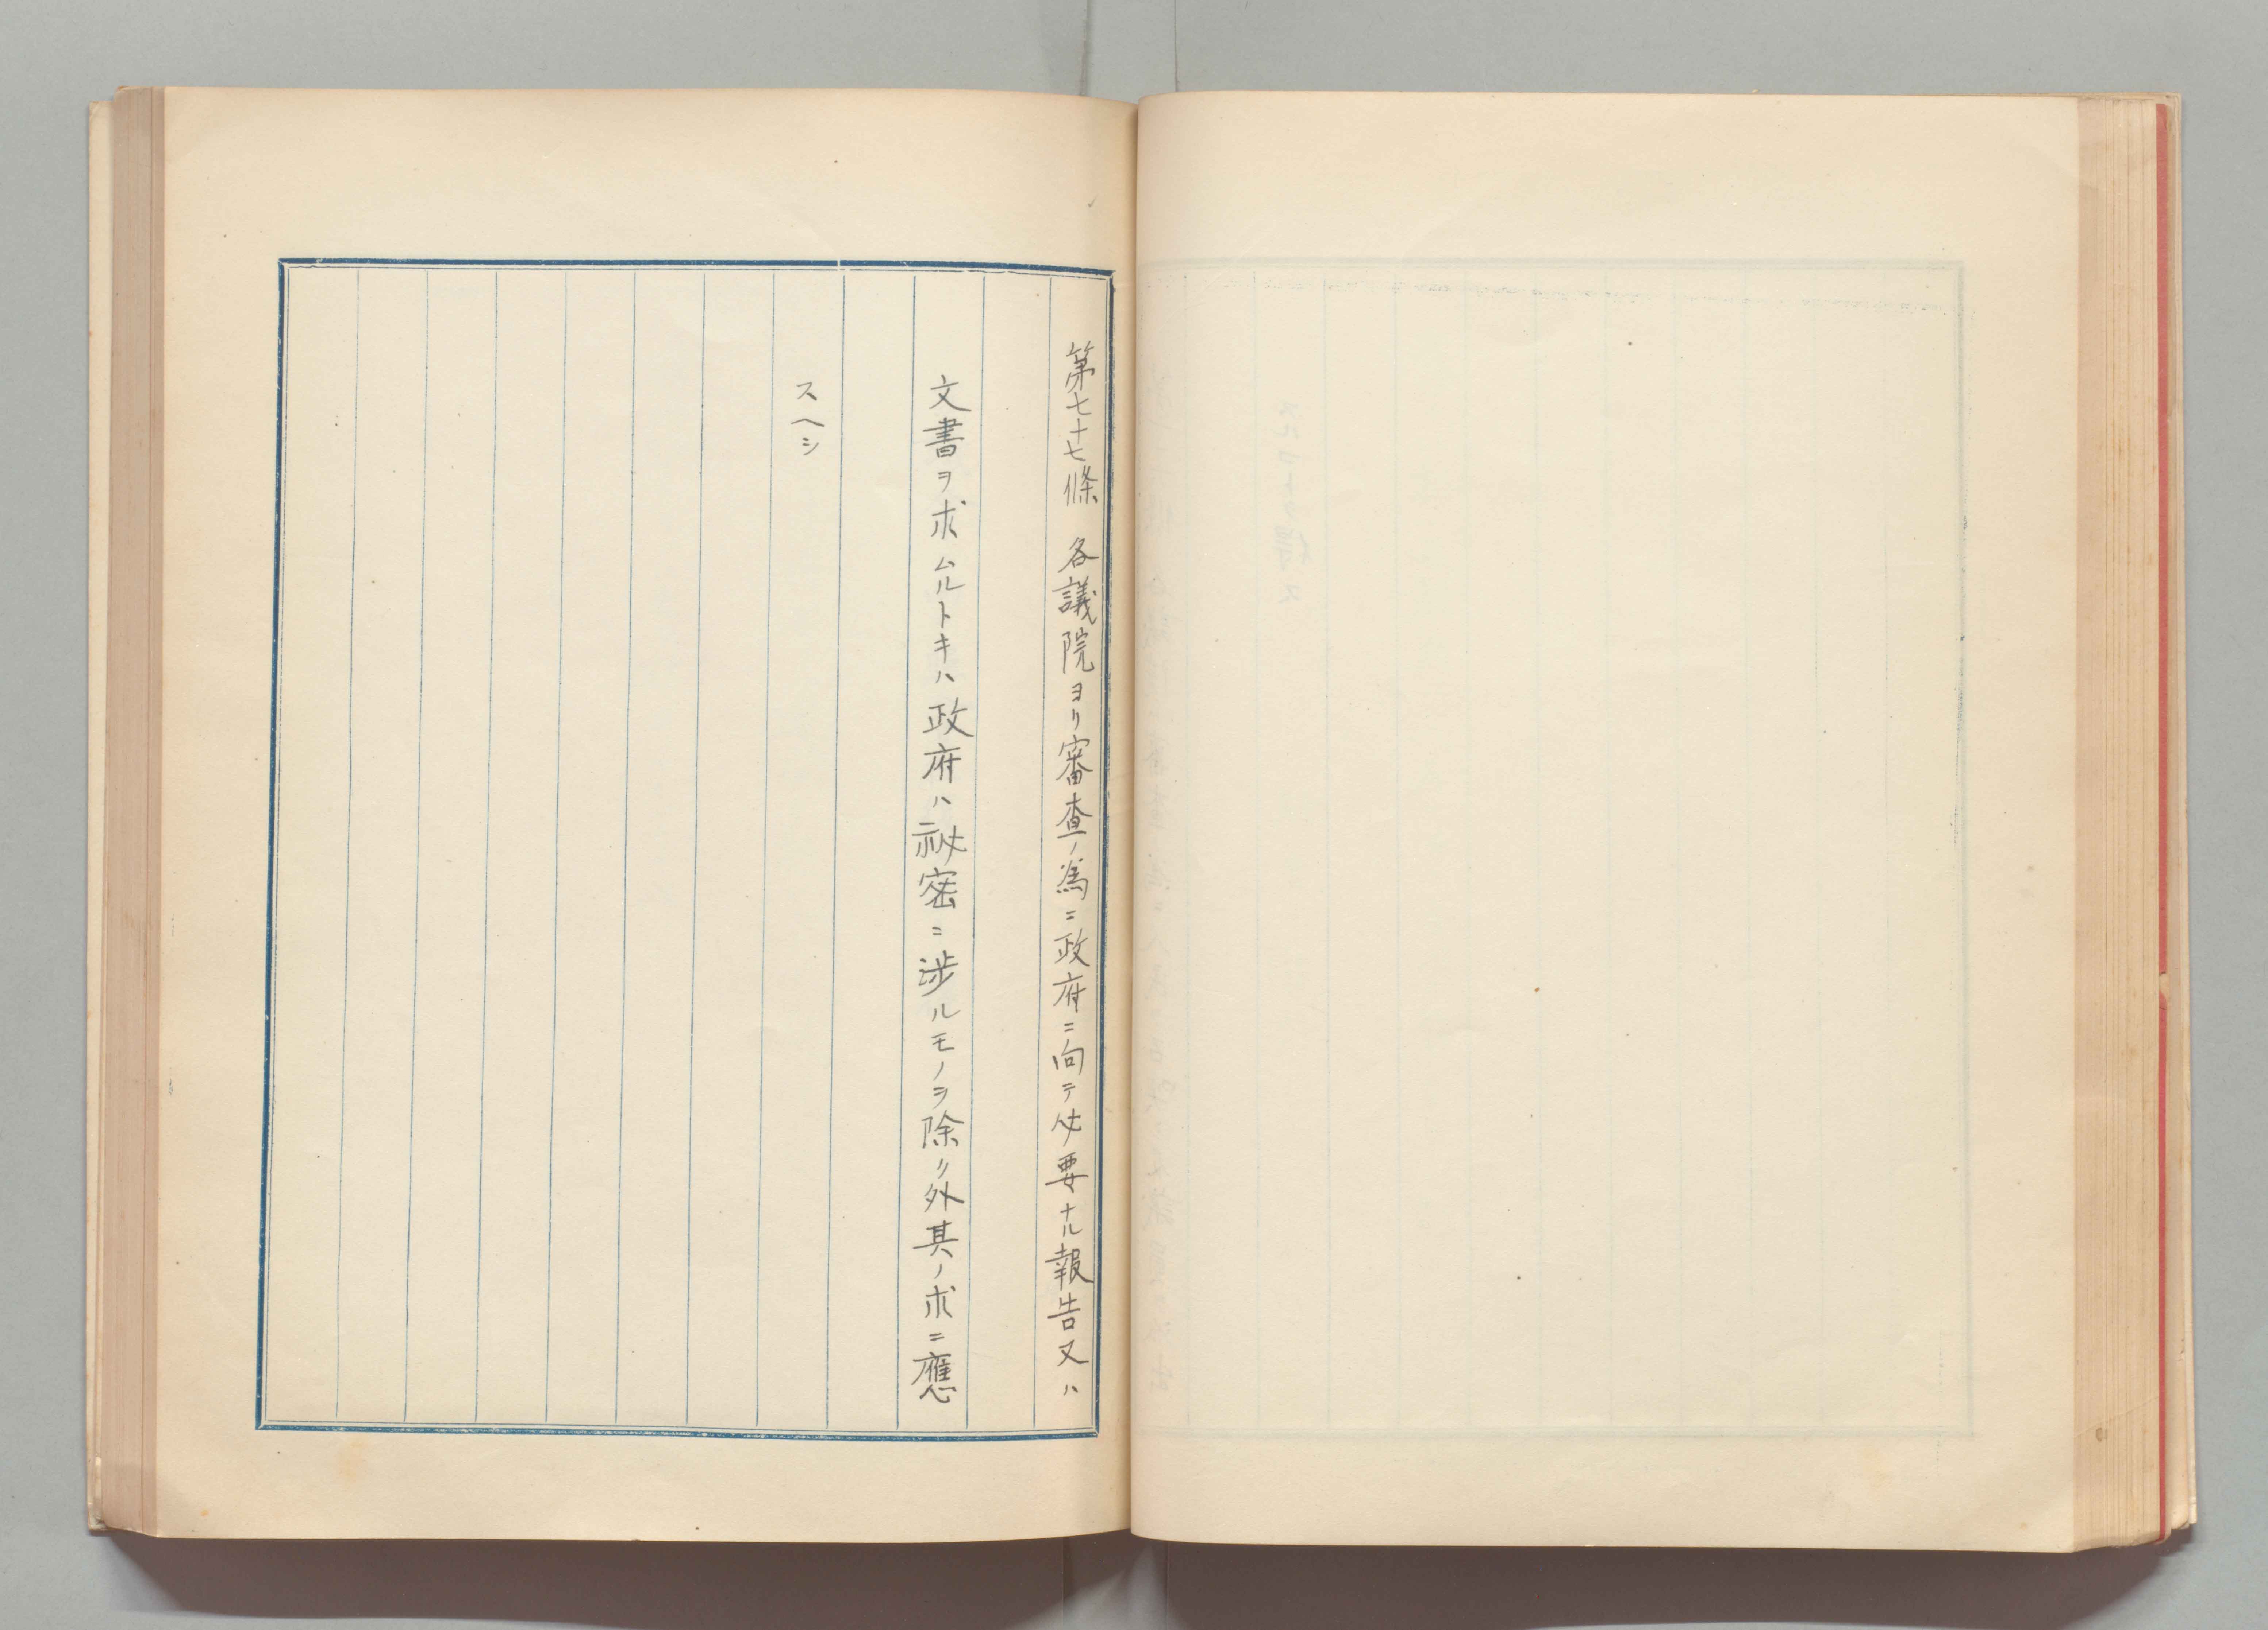 第七十七條　各議院ヨリ審査ノ爲ニ政府ニ向テ必要ナル報告又ハ
文書ヲ求ムルトキハ政府ハ祕密ニ渉ルモノヲ除ク外其ノ求ニ應
スヘシ